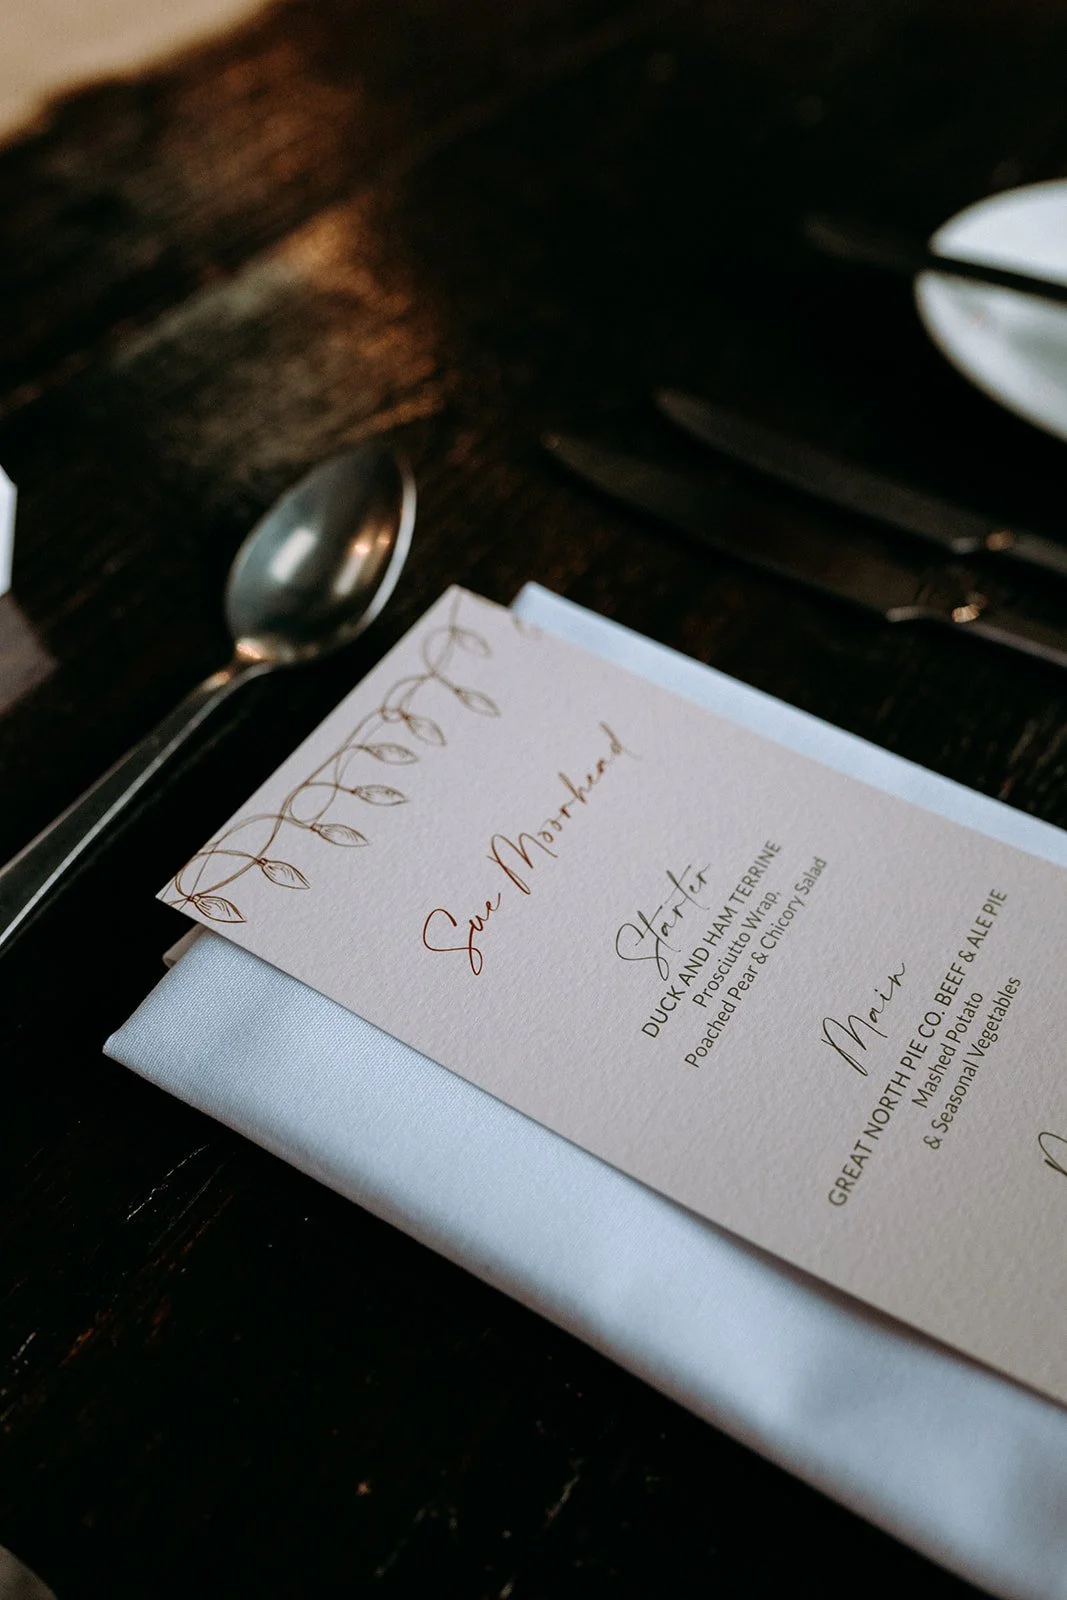 Sue Moorhead
Starter
DUCK AND HAM TERRINE
Prosciutto Wrap,
Poached Pear & Chicory Salad
Main
GREAT NORTH PIE CO. BEEF & ALE PIE
Mashed Potato
& Seasonal Vegetables